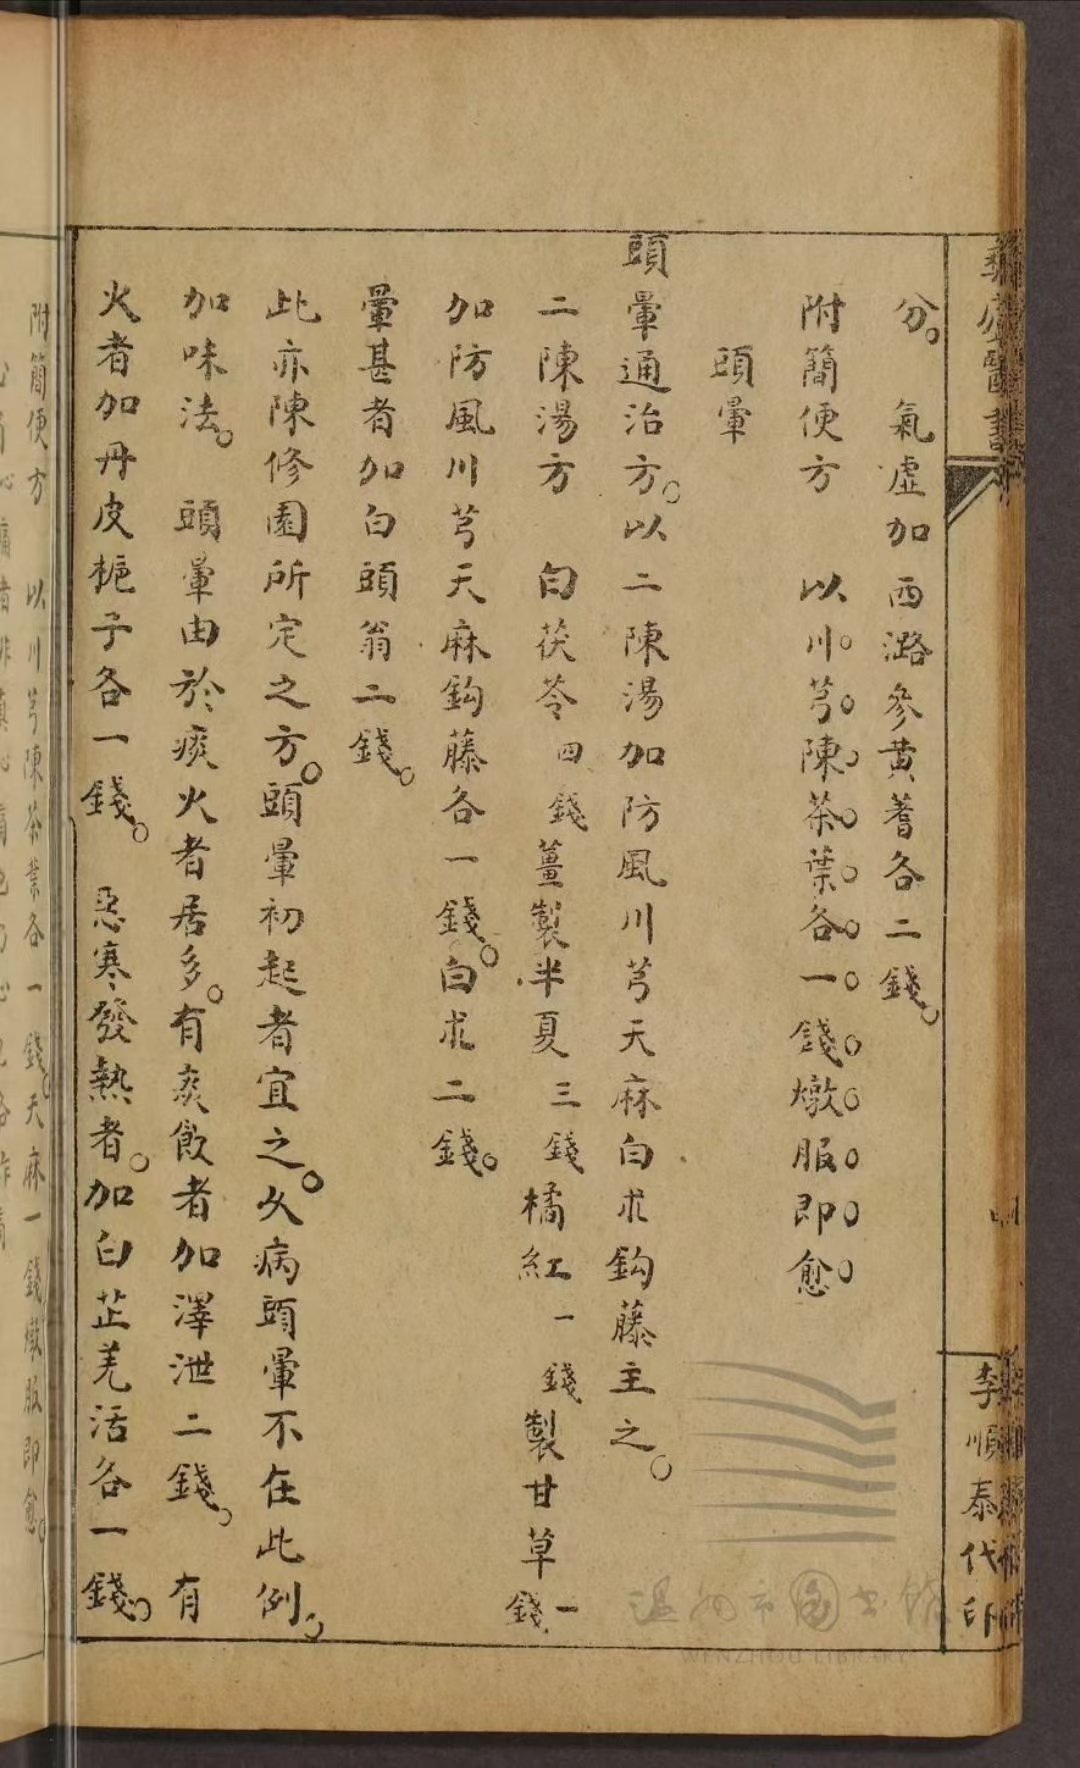 分。　氣虛加西潞參黃蓍各二錢。
附簡便方　以川芎陳茶葉各一錢燉服即愈
頭暈
頭暈通治方。以二陳湯加防風川芎天麻白朮鈎藤主之。
二陳湯方　白茯苓四錢薑製半夏三錢橘紅一錢製甘草一錢
加防風川芎天麻鈎藤各一錢。白朮二錢。
暈甚者加白頭翁二錢。
此亦陳修園所定之方。頭暈初起者宜之。久病頭暈不在此例。
加味法。　頭暈由於痰火者居多。有痰飲者加澤泄二錢。　有
火者加丹皮梔子各一錢。　惡寒發熱者。加白芷羌活各一錢。
李順泰代印
附簡便方　以川芎陳茶葉各一錢。天麻一錢燉服即愈。
溫州市圖書館
WENZHOU LIBRARY